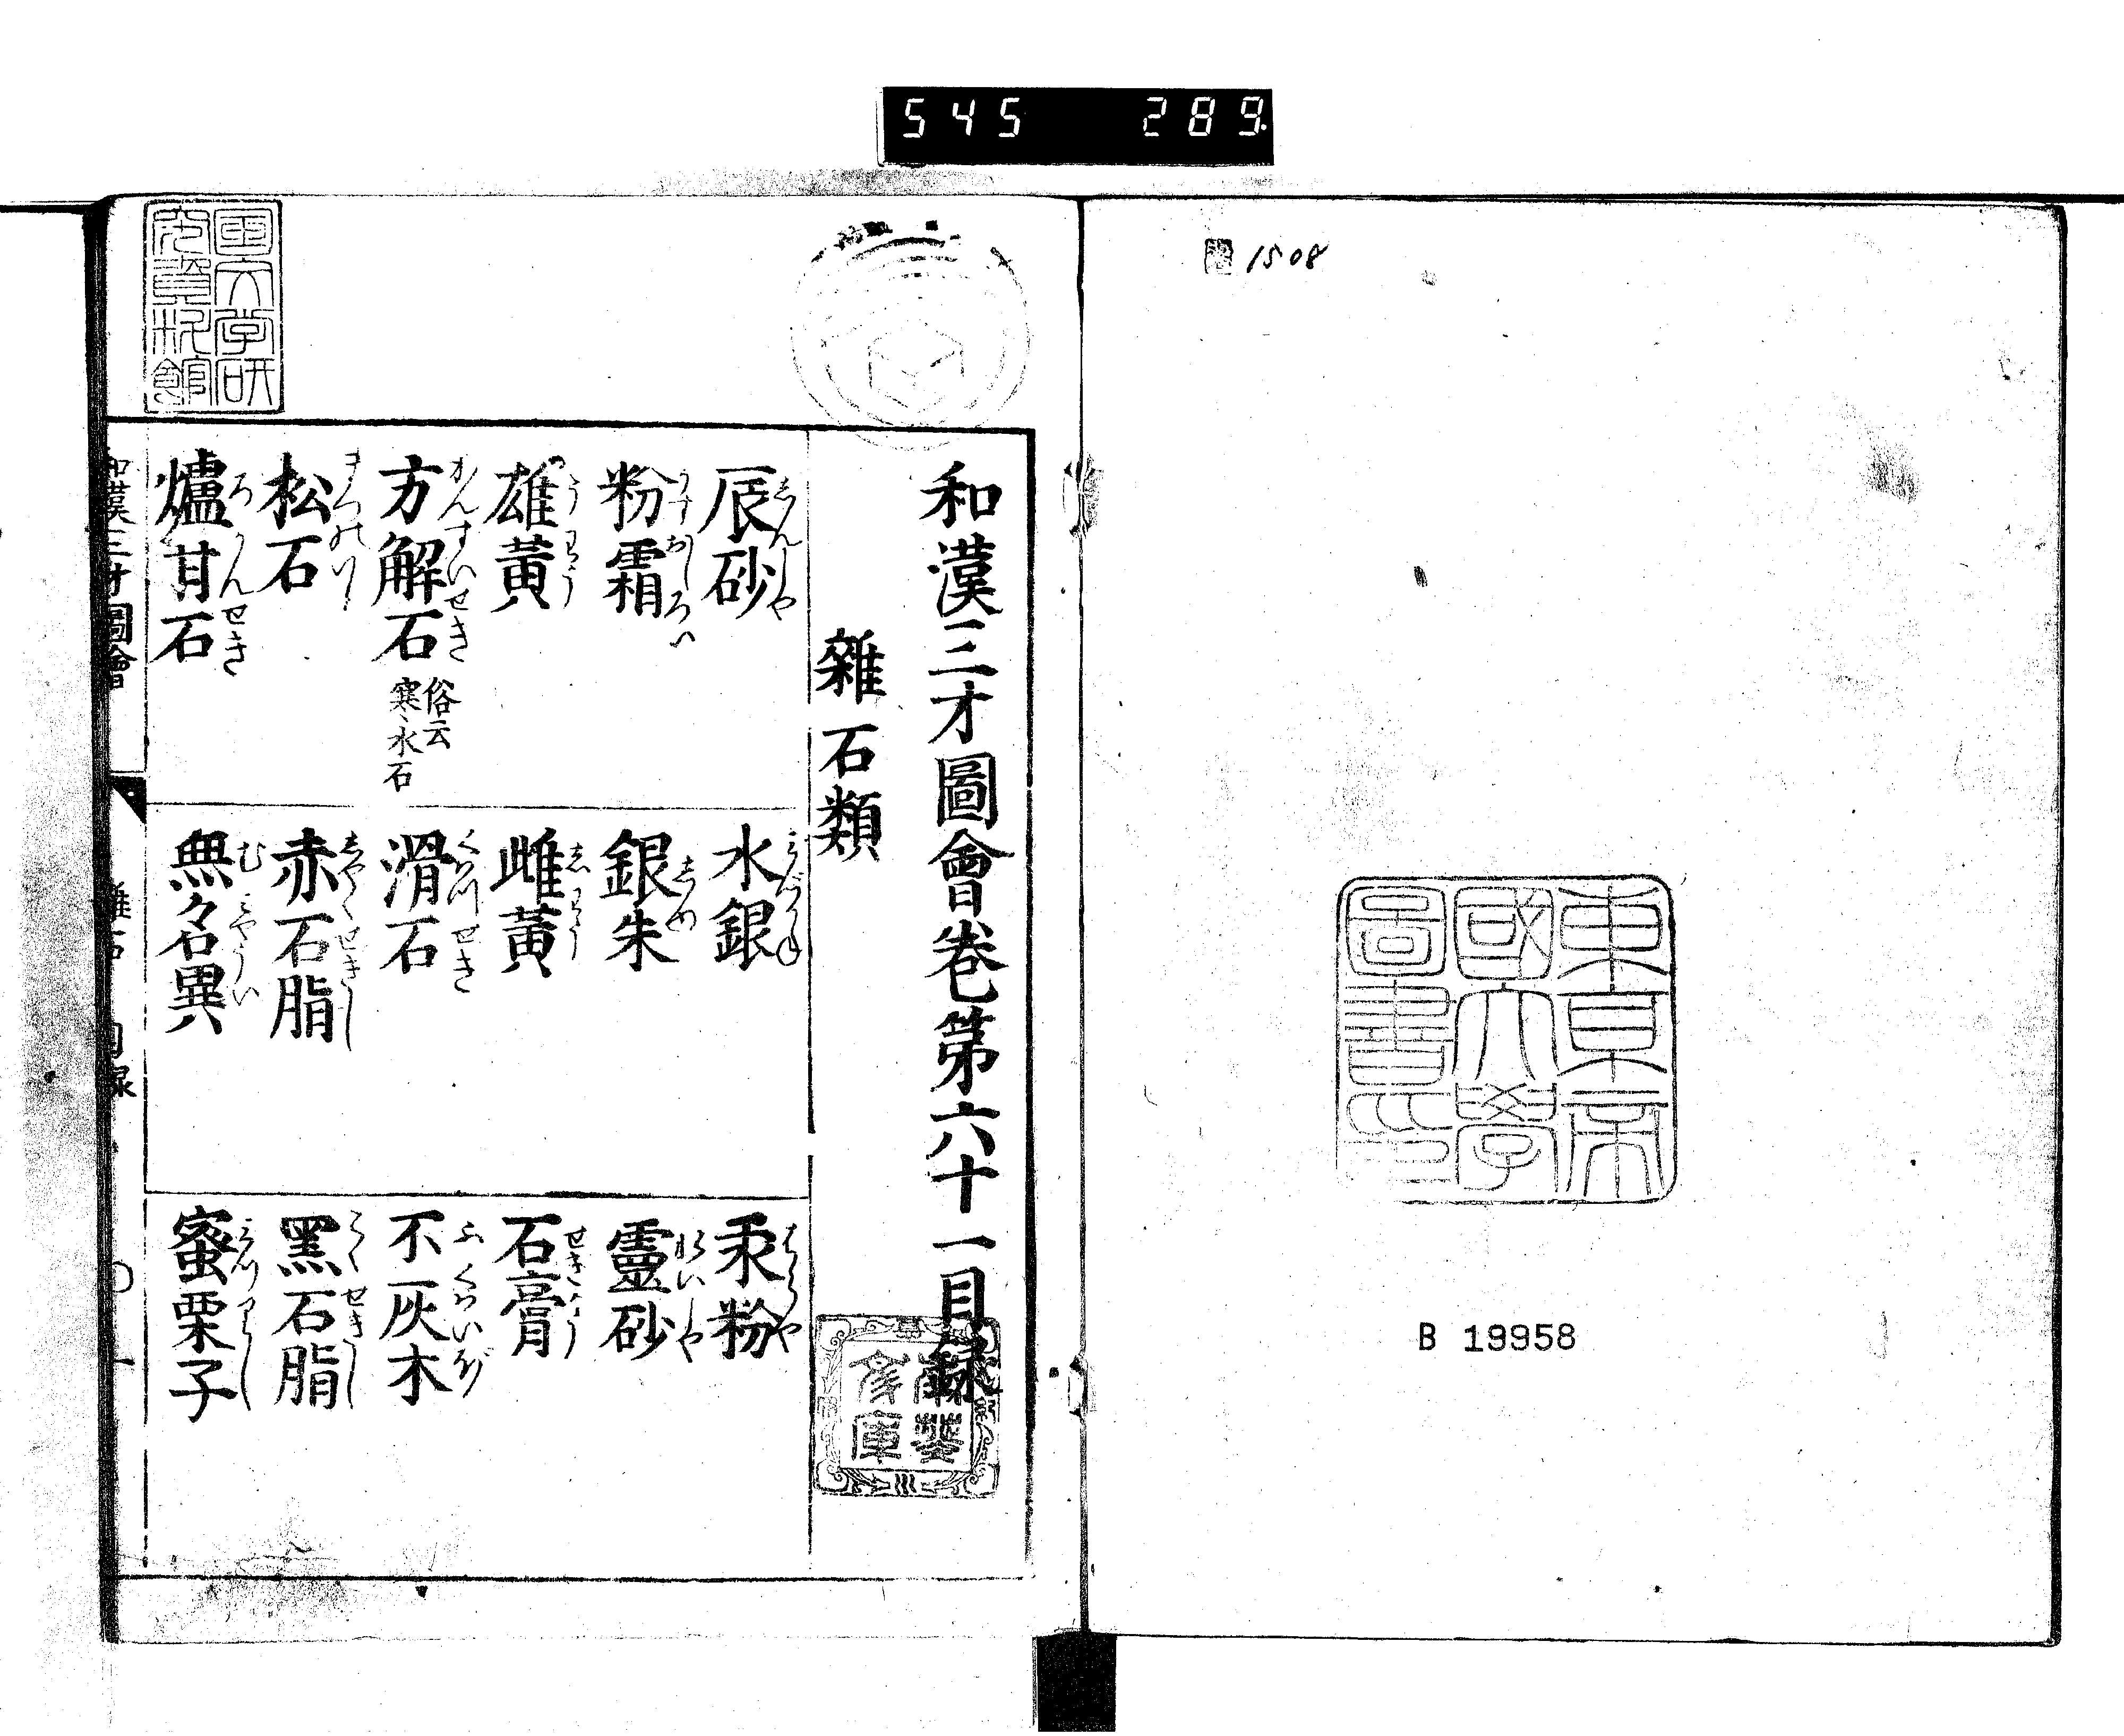 545 289
1508
東京帝
國大學
圖書印
B 19958
國文学研
究資料館
和漢三才圖會卷第六十一目録
雜石類
辰砂 しんしや
水銀 みづかね
汞粉 はらや
粉霜 うすおしろい
銀朱
靈砂 れいしや
雄黃 うわう
雌黃 しわう
石膏 せきかう
方解石 かんすいせき 俗云寒水石
滑石 くわつせき
不灰木 ふくわいぼく
松石 まつのいし
赤石脂 しやくせきし
黑石脂 こくせきし
爐甘石 ろかんせき
無名異 むみやうい
蜜栗子 みつりつし
和漢三才圖會 雜石 目録 一
文庫